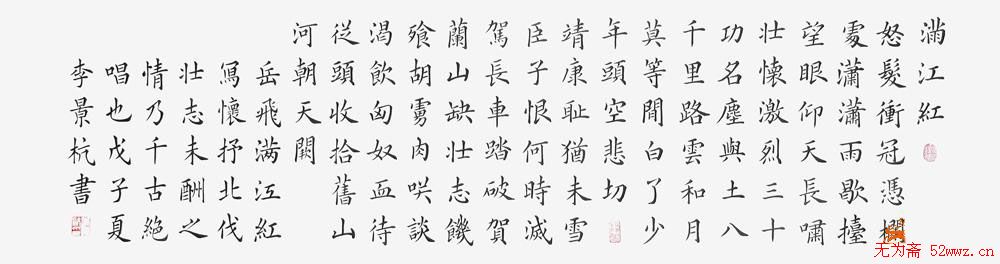 滿江紅
怒髮衝冠憑欄
處瀟瀟雨歇擡
望眼仰天長嘯
壯懷激烈三十
功名塵與土八
千里路雲和月
莫等閒白了少
年頭空悲切
靖康恥猶未雪
臣子恨何時滅
駕長車踏破賀
蘭山缺壯志饑
飱胡虜肉咲談
渴飲匈奴血待
從頭收拾舊山
河朝天闕
岳飛滿江紅
寫懷抒北伐
壯志未酬之
情乃千古絕
唱也戊子夏
李景杭書
无为斋 52wwz.cn